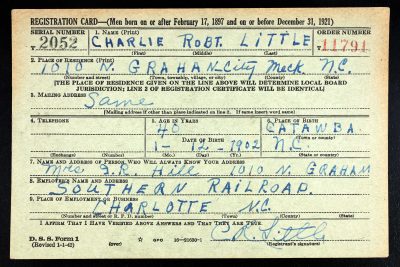 REGISTRATION CARD—(Men born on or after February 17, 1897 and on or before December 31, 1921)
SERIAL NUMBER 1. NAME (Print) ORDER NUMBER
V 2052 CHARLIE ROBT. LITTLE V 11791
2. PLACE OF RESIDENCE (Print)
1010 N. GRAHAM City Meck. N.C.
(Number and street) (Town, township, village, or city) (County) (State)
[THE PLACE OF RESIDENCE GIVEN ON THE LINE ABOVE WILL DETERMINE LOCAL BOARD
JURISDICTION; LINE 2 OF REGISTRATION CERTIFICATE WILL BE IDENTICAL]
3. MAILING ADDRESS
Same
[Mailing address if other than place indicated on line 2. If same insert word same]
4. TELEPHONE 5. AGE IN YEARS 6. PLACE OF BIRTH
40 CATAWBA
DATE OF BIRTH (Town or county)
1- 12- 1902 N.C.
(Exchange) (Number) (Mo.) (Day) (Yr.) (State or country)
7. NAME AND ADDRESS OF PERSON WHO WILL ALWAYS KNOW YOUR ADDRESS
Mrs. J.R. 1010 N. GRAHAM
8. EMPLOYER'S NAME AND ADDRESS
SOUTHERN RAILROAD.
9. PLACE OF EMPLOYMENT OR BUSINESS
CHARLOTTE N.C.
(Number and street or R. F. D. number) (Town) (County) (State)
I AFFIRM THAT I HAVE VERIFIED ABOVE ANSWERS AND THAT THEY ARE TRUE.
D. S. S. Form 1 C.R. Little
(Revised 1-1-42) (over) GPO 16—21630-1 (Registrant's signature)